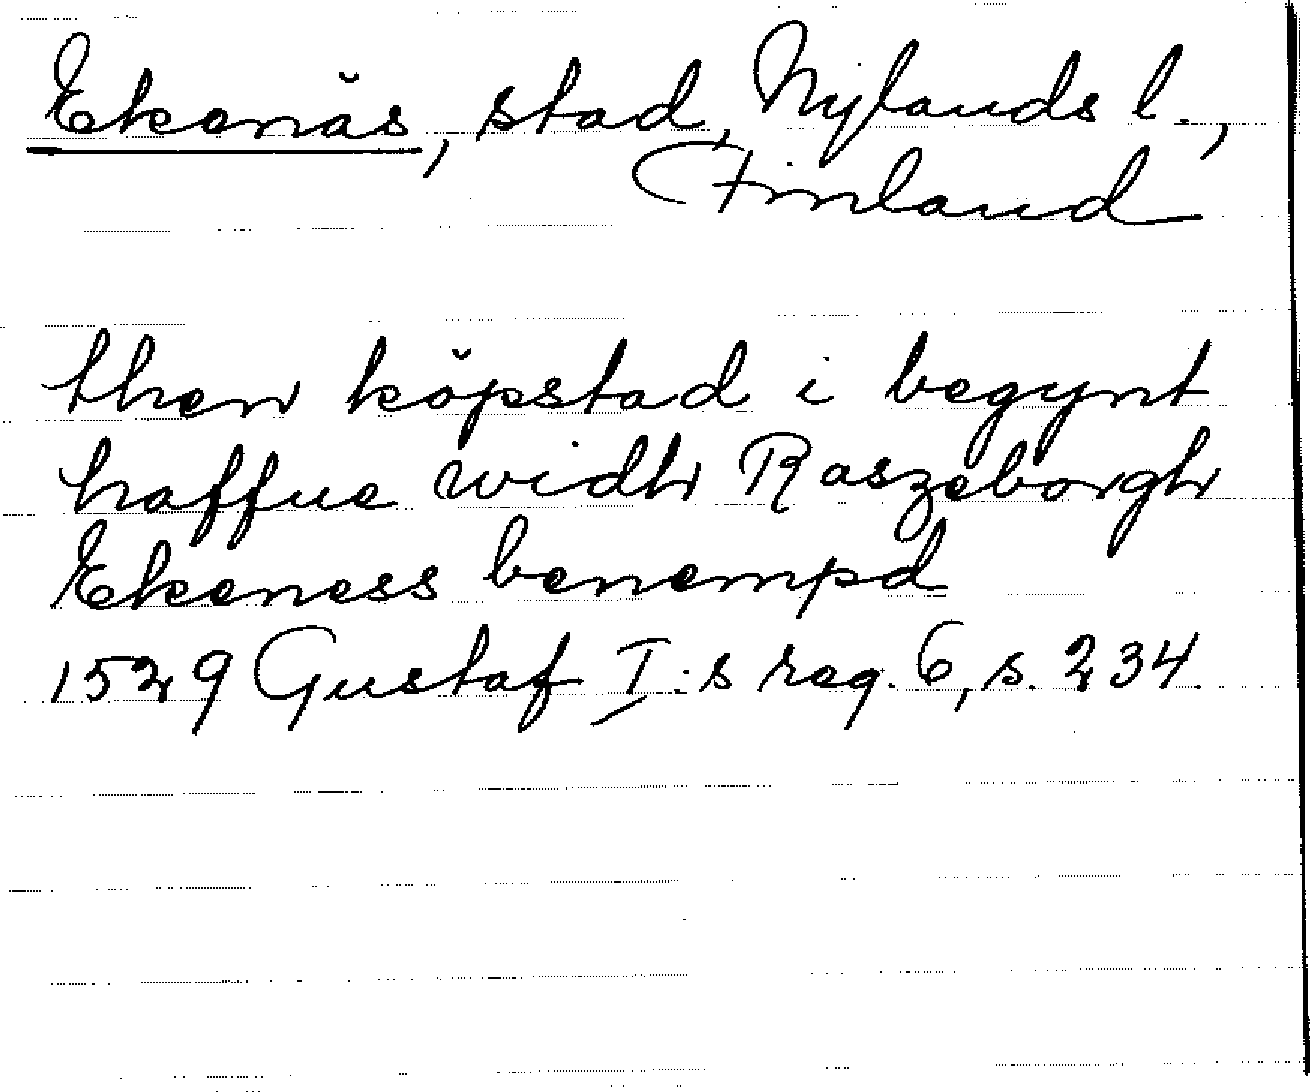 Ekenäs, stad, Nylands l.,
Finland
then köpstad i begynt
haffue widh Raszeborgh
Ekeness benempd
1529 Gustaf I:s reg. 6, s. 234.